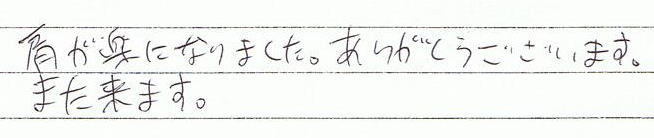 肩が楽になりました。ありがとうございます。
また来ます。